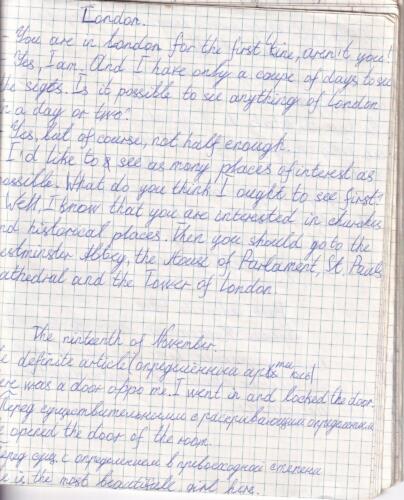 London.
- You are in London for the first time, aren't you?
Yes, I am. And I have only a coupe of days to see
the sigts. Is it possible to see anything of London
in a day or two?
Yes, but of course, not half enough.
I'd like to see as many places of interest as
possible. What do you think I ought to see first?
Well, I know that you are interested in churches
nd historical places. Then you should go to the
estminster Abbey, the House of Parlament, St. Pauls
athedral and the Tower of London.
The ninteenth of November.
e definite article (определённый
ere was a door oppo me. I went in and locked the door.
Перед существительными с раскрывающим определением
e opened the door of the room.
Перед сущ. с определением в превосходной степени
e is the most beautifull girl here.